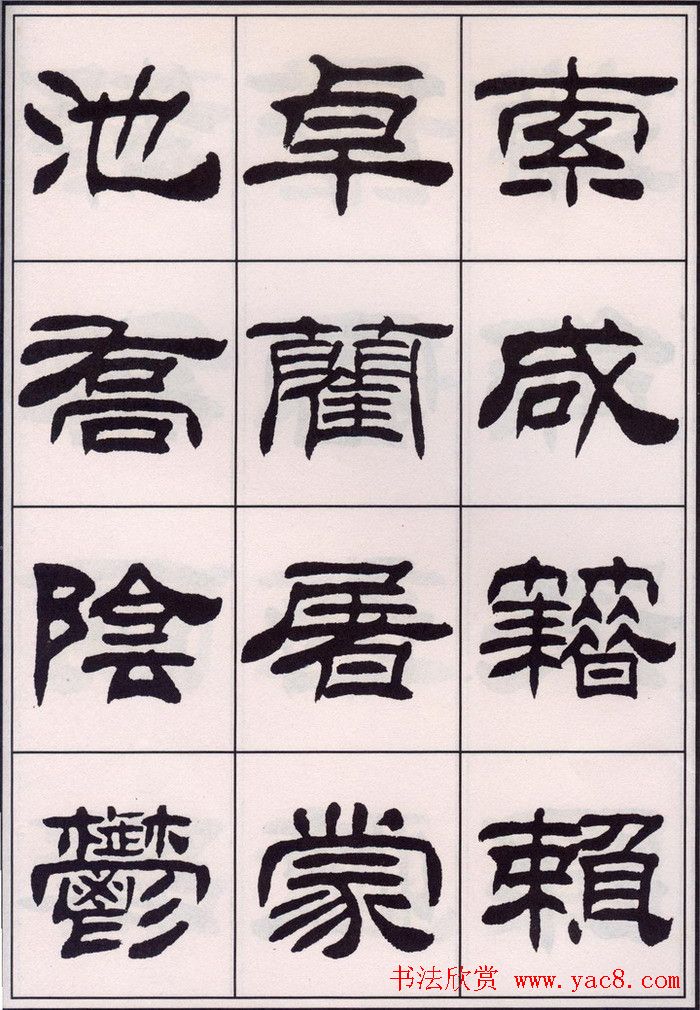 索咸籍賴
卓藺屠蒙
池喬陰鬱
书法欣赏 www.yac8.com